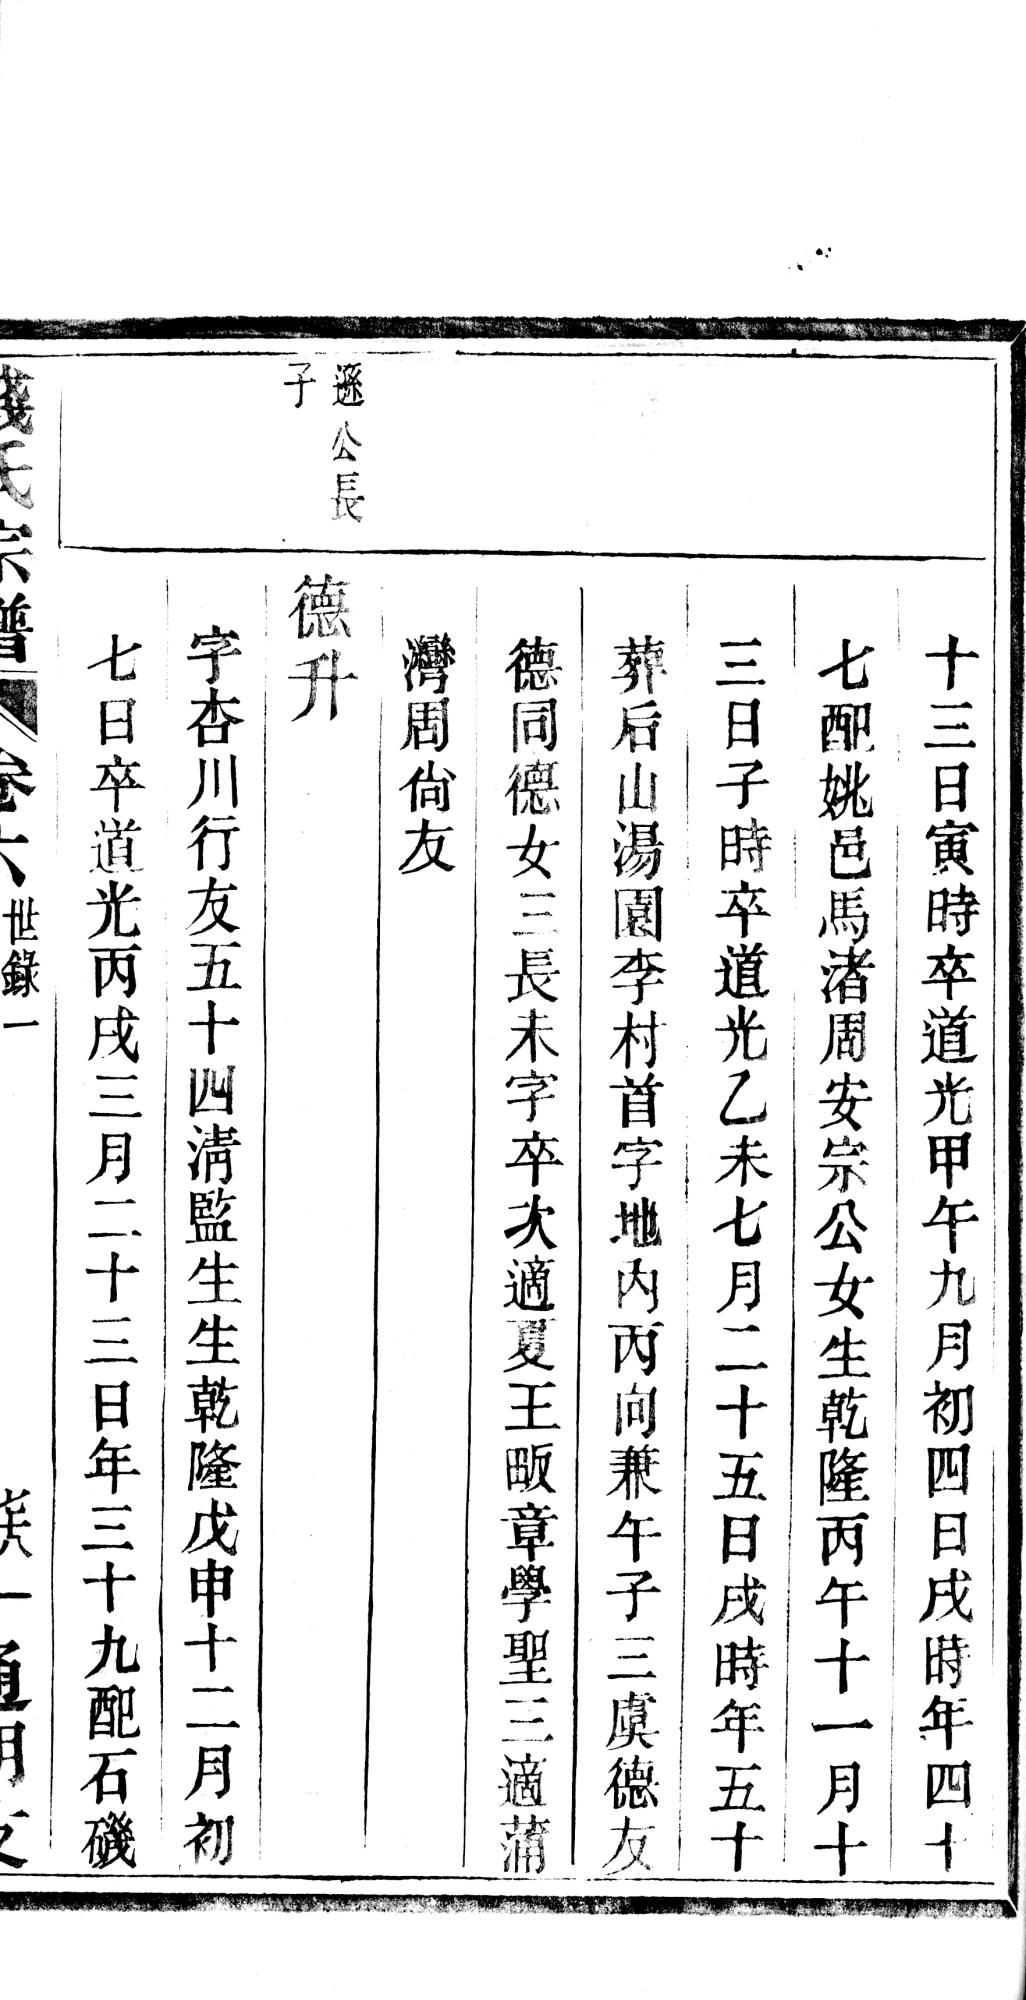 十三日寅時卒道光甲午九月初四日戌時年四十
七配姚邑馬渚周安宗公女生乾隆丙午十一月十
三日子時卒道光乙未七月二十五日戌時年五十
葬后山湯園李村首字地內丙向兼午子三虞德友
德同德女三長未字卒次適夏王畈章學聖三適蒲
灣周尙友
遜公長
子
德升
字杏川行友五十四淸監生生乾隆戊申十二月初
七日卒道光丙戌三月二十三日年三十九配石磯
錢氏宗譜 卷六 世錄一